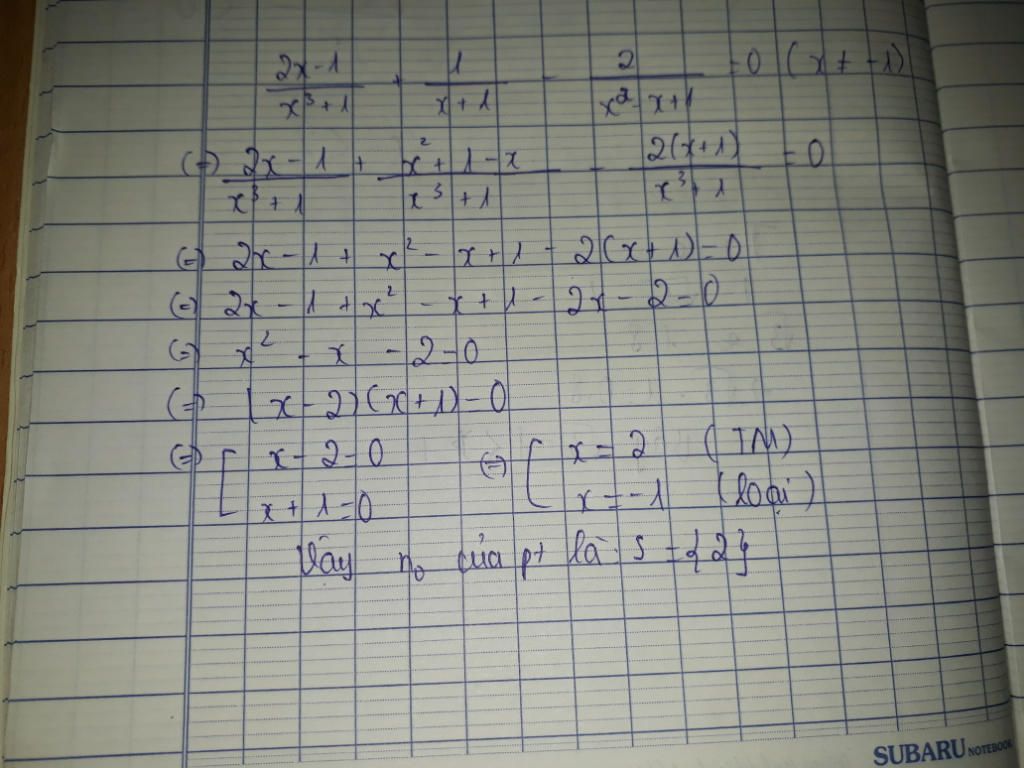 (2x-1)/(x³+1) + 1/(x+1) - 2/(x²-x+1) = 0 (x ≠ -1)
(=) (2x-1)/(x³+1) + (x²+1-x)/(x³+1) - 2(x+1)/(x³+1) = 0
(=) 2x-1+x²-x+1-2(x+1)=0
(=) 2x-1+x²-x+1-2x-2=0
(=) x²-x-2=0
(=) (x-2)(x+1)=0
(=) [ x-2=0 (=) [ x=2 (TM)
x+1=0 x=-1 (loại)
Vậy no của pt là S={2}
SUBARU NOTEBOOK